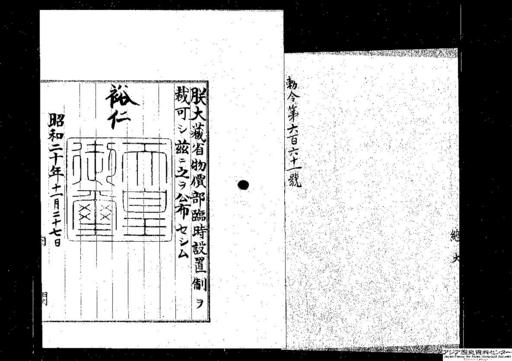 勅令第六百六十一號
朕大藏省物價部臨時設置制ヲ
裁可シ茲ニ之ヲ公布セシム
裕仁
天皇御璽
昭和二十年十一月二十七日
アジア歴史資料センター